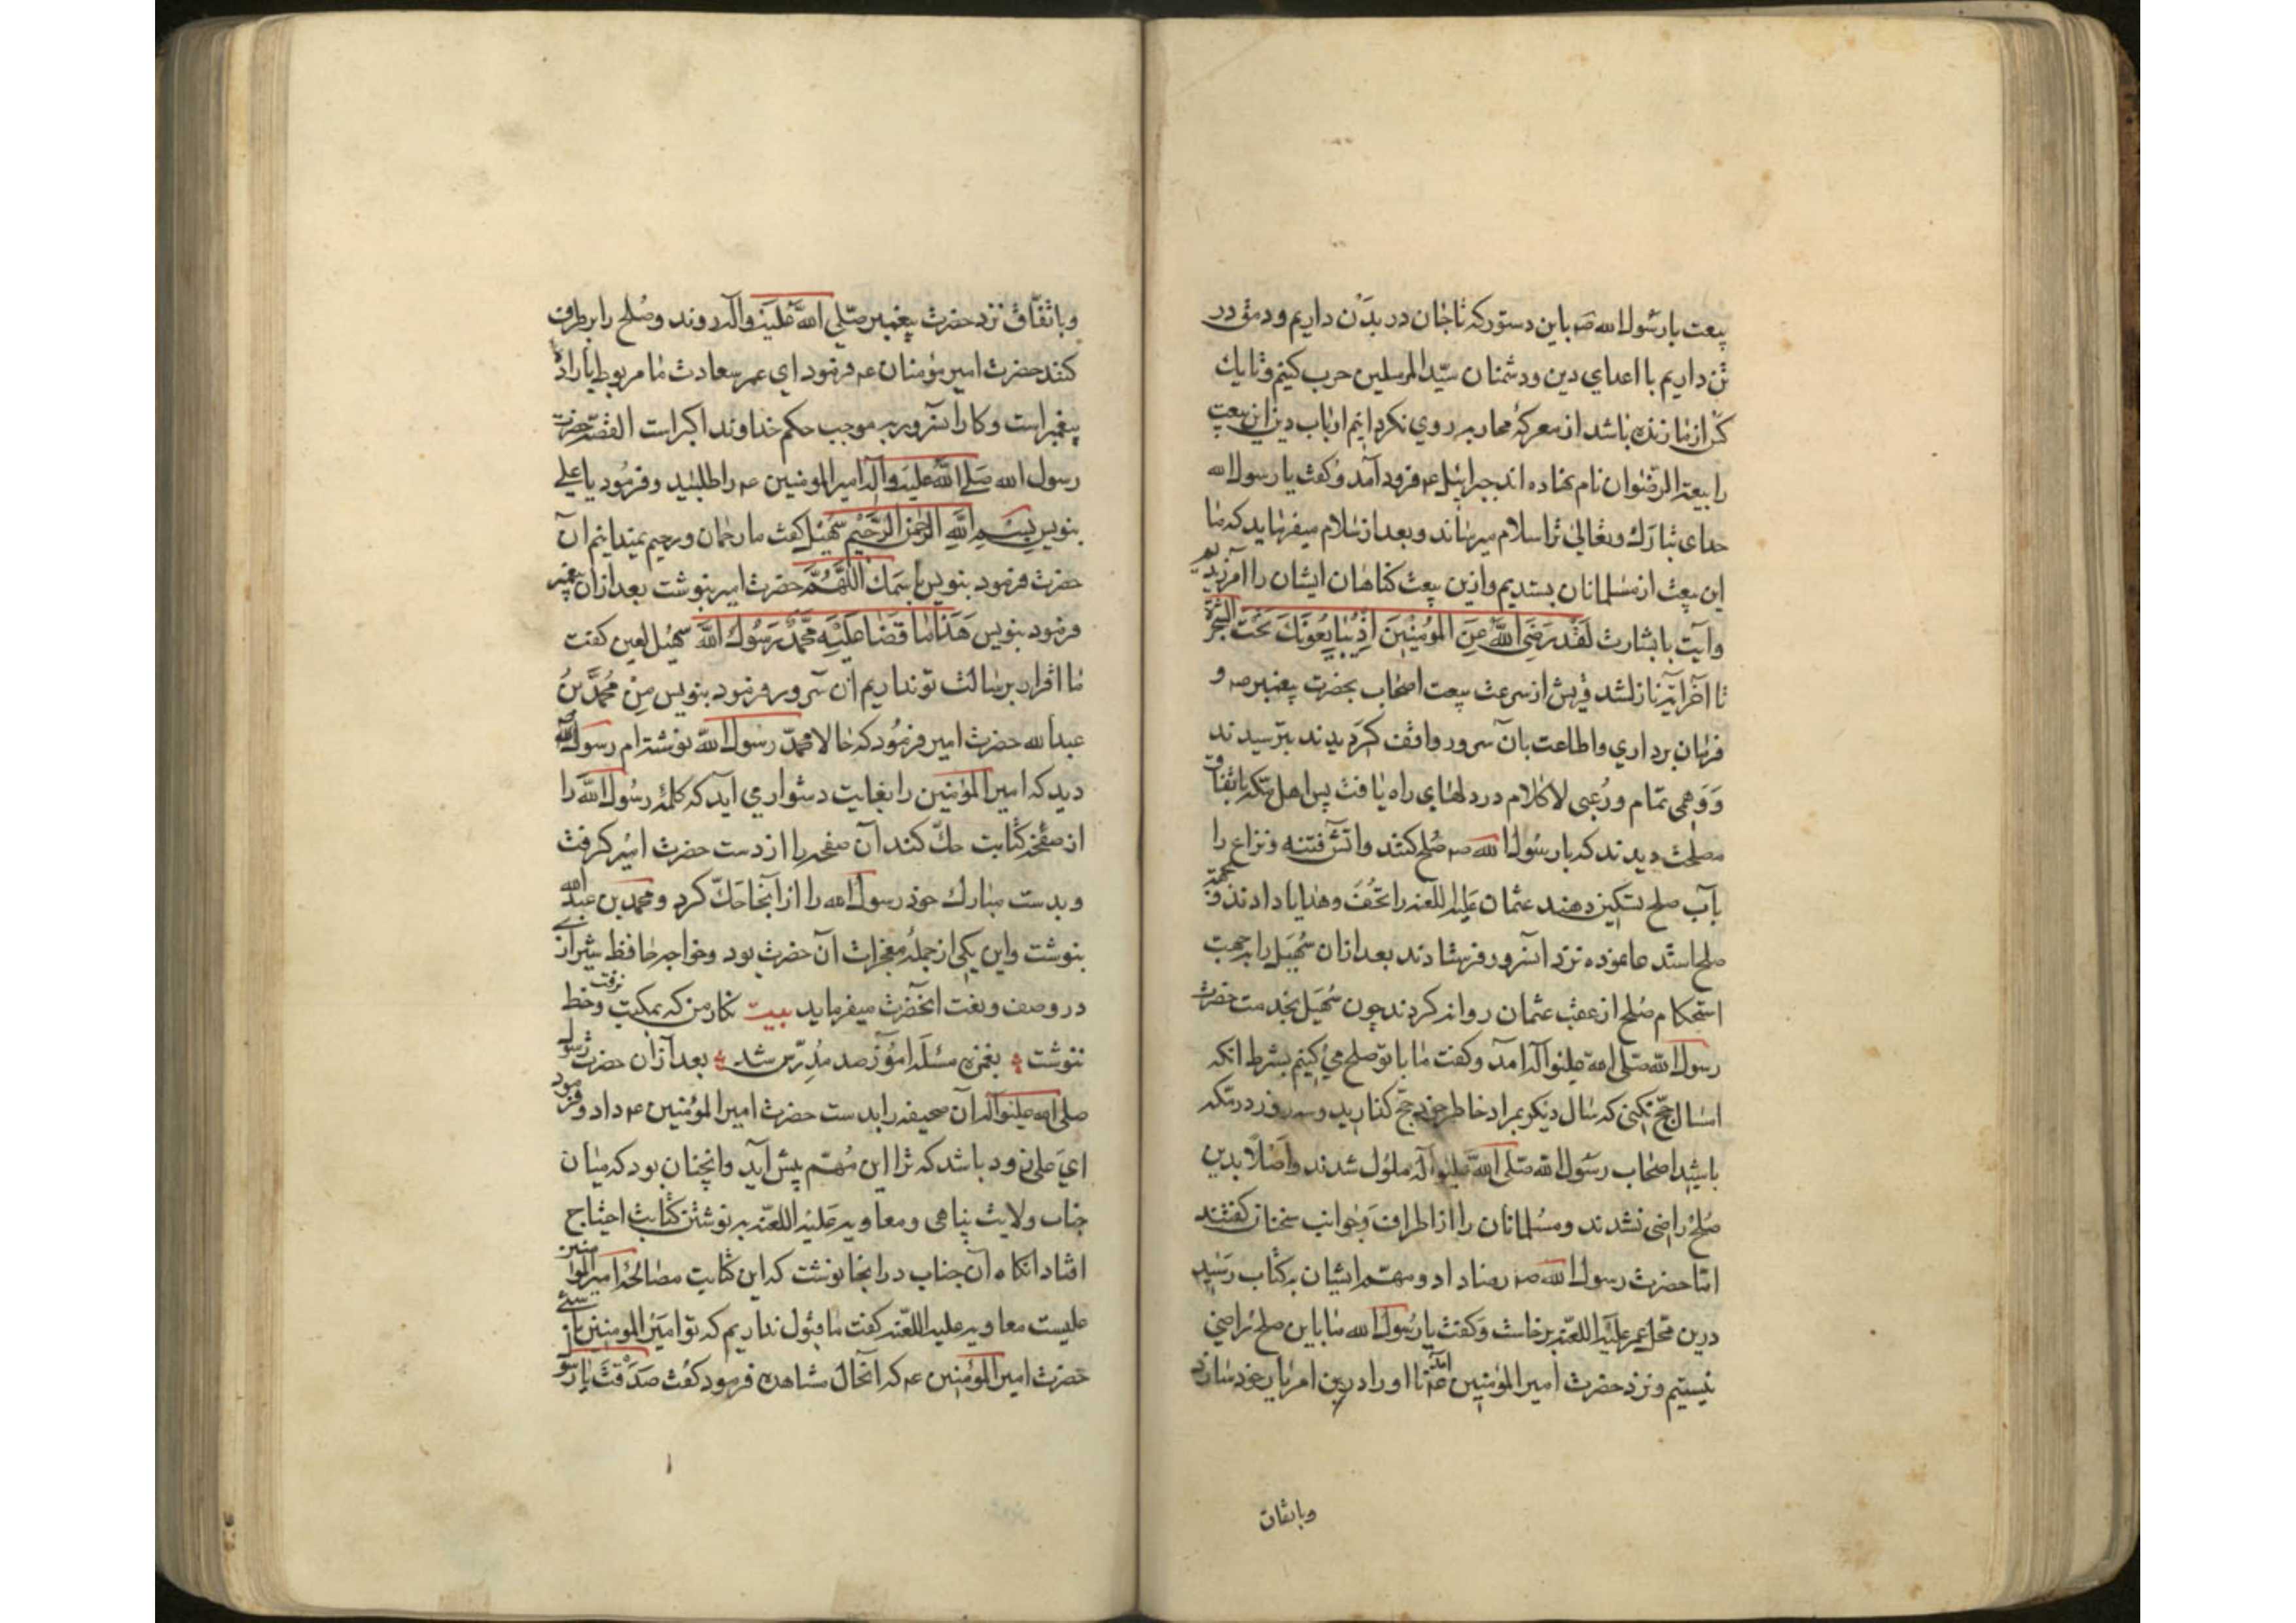 بیعت با رسول الله صم باین دستور که تا جان در بدن داریم و رمق در
تن داریم با اعدای دین و دشمنان سیّد المرسلین حرب کنیم و تا یك
کس از ما زنده باشد از معرکهٔ محاربه روی نکردانیم ارباب دین این بیعت
را بیعة الرضوان نام نهاده اند جبرائیل عم فرود آمد و کفت یا رسول الله
خدای تبارك وتعالی ترا سلام میرساند و بعد از سلام میفرماید که ما
این بیعت از مسلمانان پسندیم و ازین بیعت کناهان ایشان را آمرزیدیم
و آیت با بشارت لَقَدْ رَضِیَ اللَّهُ عَنِ المُؤمِنینَ اِذْ یُبَایِعُونَكَ تَحْتَ الشَّجَرَة
تا آخر آیه نازل شد قریش از سرعت بیعت اصحاب بحضرت پیغمبر صم و
فرمان برداری و اطاعت بآن سرور واقف کردیدند بترسیدند
وَ وَهمی تمام و رُعبی لا کلام در دلهای راه یافت پس اهل مکه باتفاق
مصلحت دیدند که با رسول الله صم صلح کنند و آتش فتنه و نزاع را
بآب صلح تسکین دهند عثمان علیه اللعنه را تحف و هدایا دادند و بجهة
صلح استدعا نموده نزد آنسرور فرستادند بعد ازان سُهَیل را بجهت
استحکام صلح از عقب عثمان روانه کردند چون سُهَیل بخدمت حضرت
رسول الله صلّی الله علیه و آله آمد و کفت ما با تو صلح می کنیم بشرط انکه
امسال حجّ نکنی که سال دیکر بمراد خاطر خود حجّ کذارید و سه روز در مکه
باشید اصحاب رسول الله صلّی الله علیه و آله ملول شدند و اصلاً بدین
صُلح راضی نشدند و مسلمانان را از اطراف و جوانب سخنان کفتند
امّا حضرت رسول الله صم رضا داد و مهمّ ایشان به کتاب رسید
درین محل عمر علیه اللعنه برخاست و کفت یا رسول الله ما باین صلح راضی
نیستیم و نزد حضرت امیر المؤمنین عم آمد تا او را درین امر یار خود سازد
وباتفاق
وباتّفاق نزد حضرت پیغمبر صلّی اللّه علیه وآله روند وصُلح را برطرف
کنند حضرت امیر مؤمنان عم فرمود ای عمر سعادت ما مربوط باراده
پیغمبر است و کار آنسرور به موجب حکم خداوند اکبر است القصّه حضرت
رسول الله صلی اللّه علیه وآله امیر المومنین عم را طلبید و فرمود یا علی
بنویس بِسْمِ اللَّهِ الرَّحمنِ الرَّحیم سُهَیل کفت ما رحمان و رحیم نمیدانیم آن
حضرت فرمود بنویس باسمك اللّهُمَّ حضرت امیر بنوشت بعد ازان پیغمبر
فرمود بنویس هَذَا مَا قَضَا عَلَیْهِ مُحَمَّدٌ رَسُولُ اللَّه سُهیل لعین کفت
ما اقرار برسالت تو نداریم آن سرور فرمود بنویس مِنْ مُحَمَّدِ بنُ
عبد الله حضرت امیر فرمود که حالا محمّد رسول اللّه نوشته ام رسول اللّه
دید که امیر المؤمنین را بغایت دشوار می آید که کلمهٔ رسول الله را
از صفحهٔ کتابت حكّ کند آن صفحه را از دست حضرت امیر کرفت
و بدست مبارك خود رسول الله را از آنجا حَكّ کرد و محمد بن عبد الله
بنوشت و این یکی از جملهٔ معجزات آن حضرت بود و خواجه حافظ شیرازی
در وصف و نعت انحضرت میفرماید بیت نکار من که بمکتب نرفت وخط
ننوشت بغمزه مسئله آموز صد مُدرّس شد بعد ازان حضرت رسول
صلی الله علیه وآله آن صحیفه را بدست حضرت امیر المؤمنین عم داد و فرمود
ایَ علی زود باشد که ترا این مُهمّ پیش آید و انچنان بود که میان
جناب ولایت پناهی و معاویه علیه اللعنه به نوشتن کتابت احتیاج
افتاد انکاه آن جناب در انجا نوشت که این کتابت مصالحهٔ امیر المؤمنین
علیست معاویه علیه اللعنه کفت ما قبول نداریم که تو امیر المومنین باشی
حضرت امیر المؤمنین عم که آنحال مشاهده فرمود کفت صَدَقْتَ یا رسول